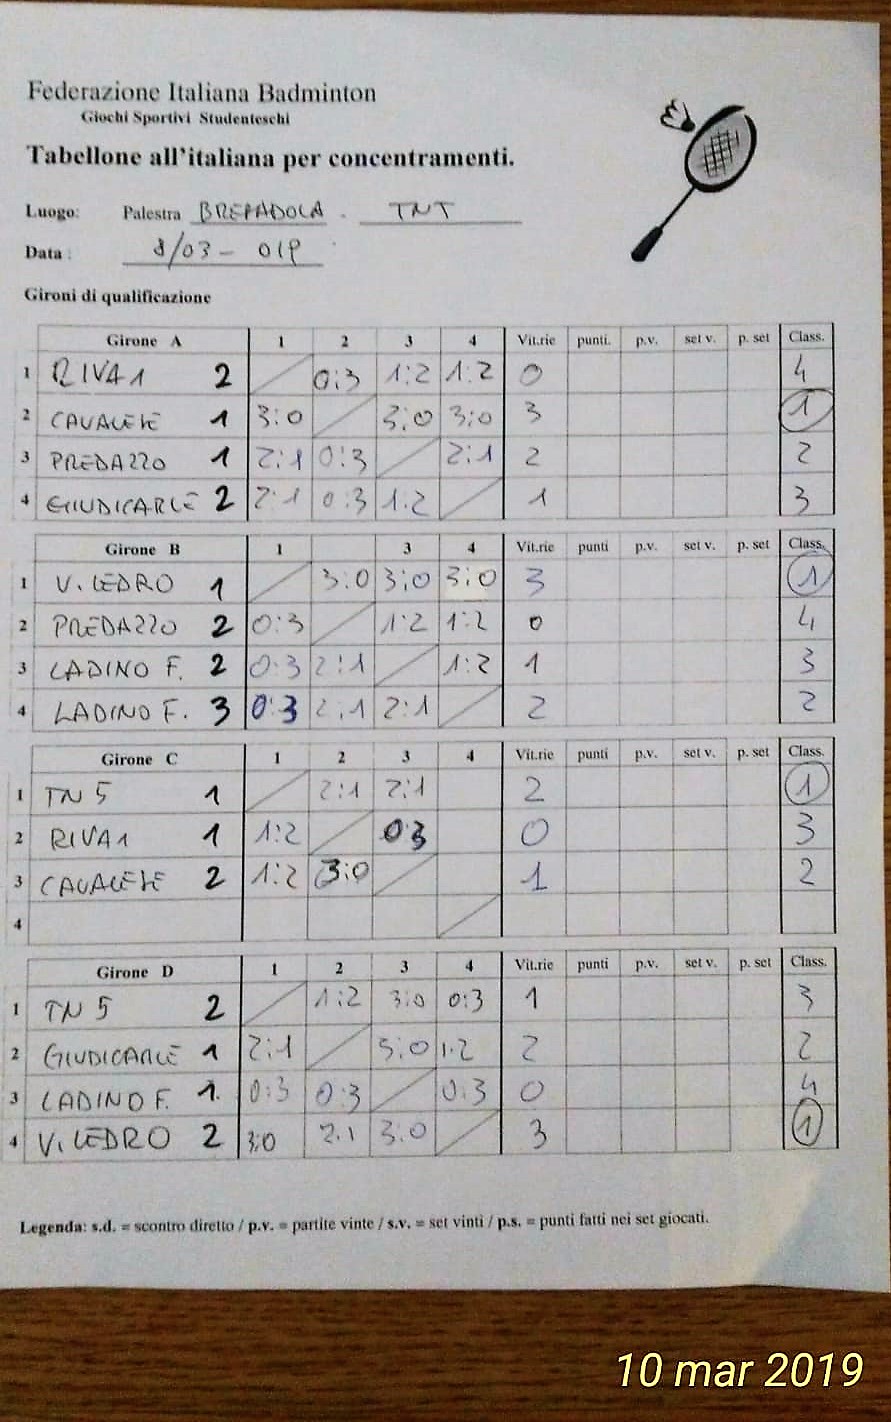 Federazione Italiana Badminton
Giochi Sportivi Studenteschi
Tabellone all'italiana per concentramenti.
Luogo: Palestra BREPADOLA - TNT
Data : 8/03 - 019
Gironi di qualificazione
Girone A 1 2 3 4 Vit.rie punti. p.v. set v. p. set Class.
1 RIVA 1 2 0:3 1:2 1:2 0 4
2 CAVALESE 1 3:0 3:0 3:0 3 1
3 PREDAZZO 1 2:1 0:3 2:1 2 2
4 GIUDICARIE 2 2:1 0:3 1:2 1 3
Girone B 1 3 4 Vit.rie punti p.v. set v. p. set Class.
1 V. LEDRO 1 3:0 3:0 3:0 3 1
2 PREDAZZO 2 0:3 1:2 1:2 0 4
3 LADINO F. 2 0:3 2:1 1:2 1 3
4 LADINO F. 3 0:3 2:1 2:1 2 2
Girone C 1 2 3 4 Vit.rie punti p.v. set v. p. set Class.
1 TN 5 1 2:1 2:1 2 1
2 RIVA 1 1 1:2 0:3 0 3
3 CAVALESE 2 1:2 3:0 1 2
4
Girone D 1 2 3 4 Vit.rie punti p.v. set v. p. set Class.
1 TN 5 2 1:2 3:0 0:3 1 3
2 GIUDICARIE 1 2:1 3:0 1:2 2 2
3 LADINO F. 1. 0:3 0:3 0:3 0 4
4 V. LEDRO 2 3:0 2:1 3:0 3 1
Legenda: s.d. = scontro diretto / p.v. = partite vinte / s.v. = set vinti / p.s. = punti fatti nei set giocati.
10 mar 2019